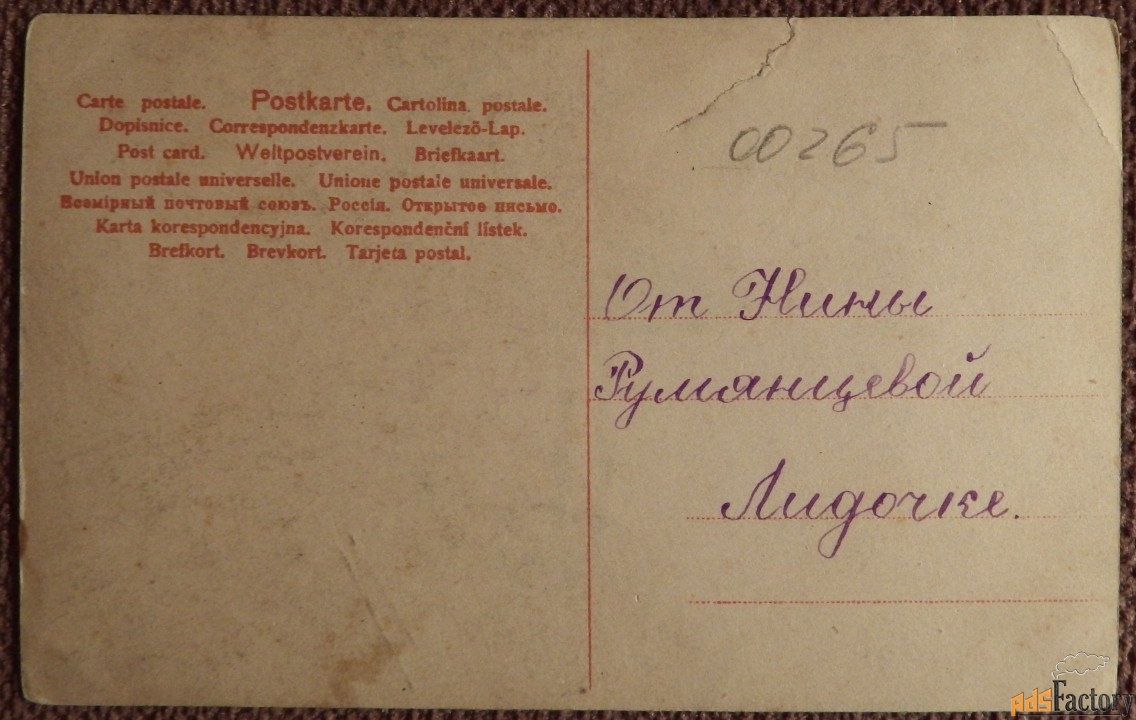 Carte postale. Postkarte. Cartolina postale.
Dopisnice. Correspondenzkarte. Levelezõ-Lap.
Post card. Weltpostverein. Briefkaart.
Union postale universelle. Unione postale universale.
Всемірный почтовый союзъ. Россія. Открытое письмо.
Karta korespondencyjna. Korespondenční lístek.
Brefkort. Brevkort. Tarjeta postal.
00265
От Нины
Румянцевой
Лидочке.
AdsFactory